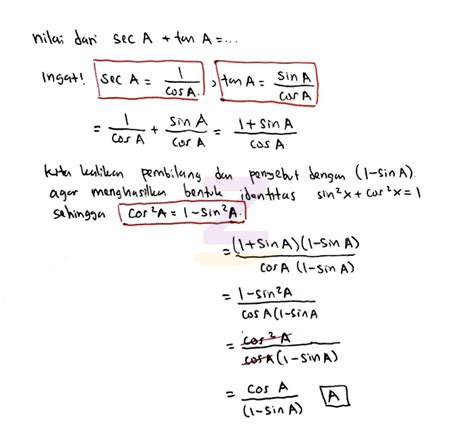 nilai dari sec A + tan A = ...
Ingat! sec A = 1/cos A , tan A = sin A/cos A
= 1/cos A + sin A/cos A = 1 + sin A/cos A
kita kalikan pembilang dan penyebut dengan (1-sin A)
agar menghasilkan bentuk identitas sin²x + cos²x = 1
sehingga cos²A = 1 - sin²A
= (1+sin A)(1-sin A)/cos A (1-sin A)
= 1-sin²A/cos A (1-sin A
= cos²A/cos A (1-sin A)
= cos A/(1-sin A) A